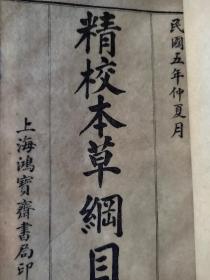 民國五年仲夏月
精校本草綱目
上海鴻寶齋書局印